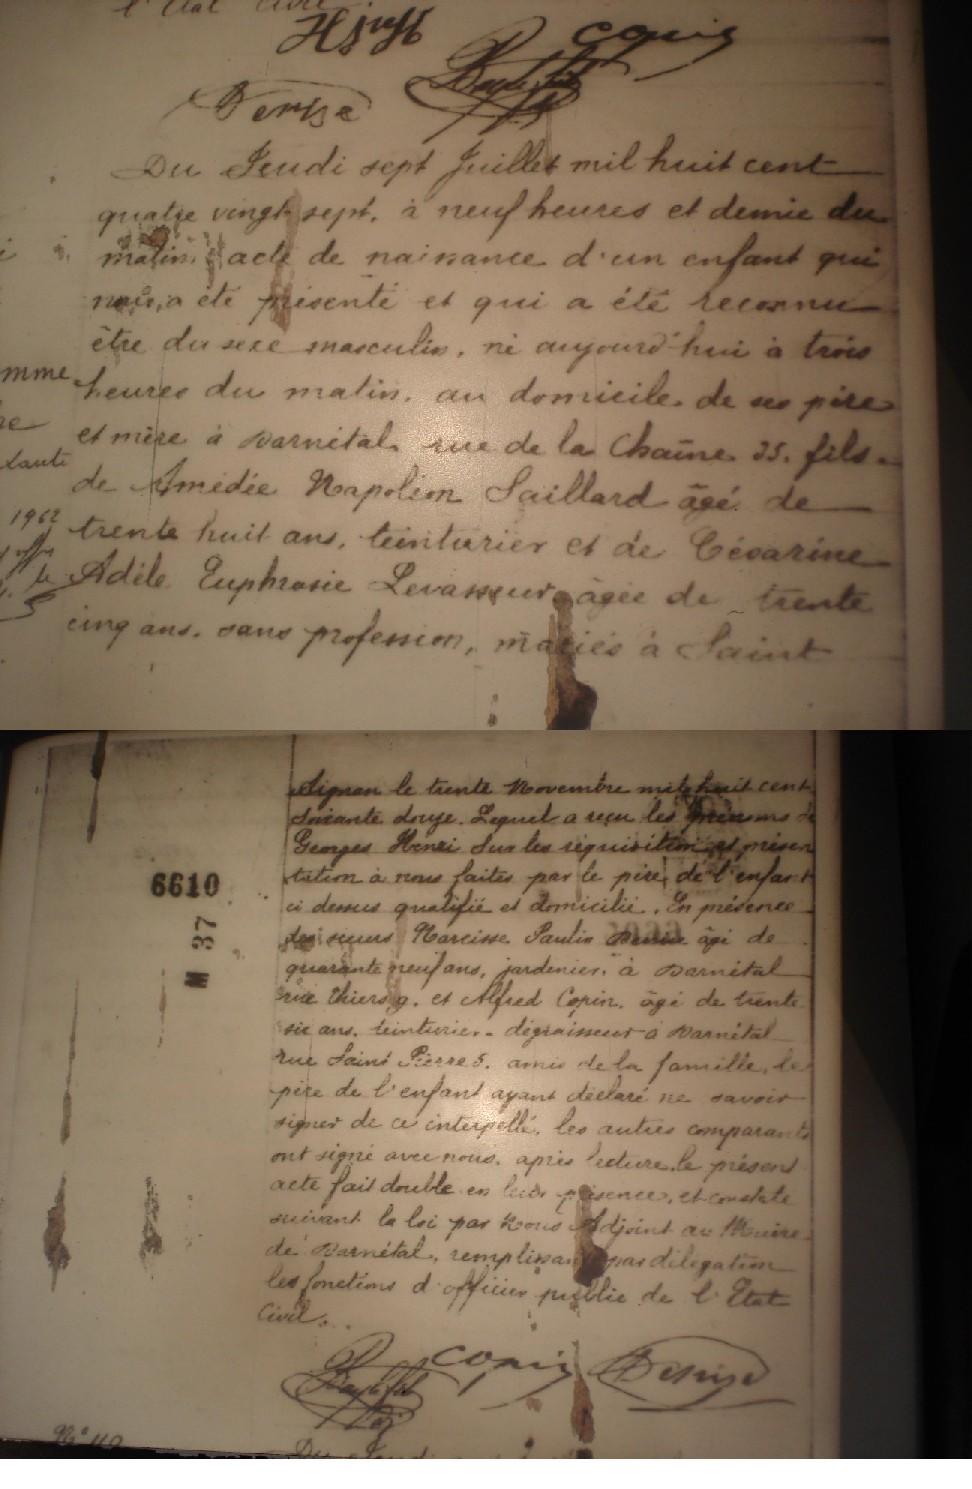 l'Etat Civil.
Copin
Denise
Du Jeudi sept Juillet mil huit cent
quatre vingt sept, à neuf heures et demie du
matin, acte de naissance d'un enfant qui
nous a été présenté et qui a été reconnu
être du sexe masculin, né aujourd'hui à trois
heures du matin, au domicile de ses père
et mère à Darnétal, rue de la Chaîne 35, fils
de Amédée Napoléon Saillard âgé de
trente huit ans, teinturier et de Césarine
Adèle Euphrosie Levasseur, âgée de trente
cinq ans, sans profession, mariés à Saint
mme
1962
le
Aignan le trente Novembre mil huit cent
soixante douze. Lequel a reçu les prénoms de
Georges Henri Sur les réquisition et présen
tation à nous faites par le père de l'enfant
ci dessus qualifié et domicilié. En présence
des sieurs Narcisse Paulin Denise âgé de
quarante neuf ans, jardinier, à Darnétal
rue Thiers 9, et Alfred Copin, âgé de trente
six ans, teinturier-dégraisseur à Darnétal
rue Saint Pierre 5, amis de la famille, le
père de l'enfant ayant déclaré ne savoir
signer de ce interpellé, les autres comparants
ont signé avec nous, après lecture, le présent
acte fait double en leur présence, et constaté
suivant la loi par Nous Adjoint au Maire
de Darnétal, remplissant par délégation
les fonctions d'officier public de l'Etat
Civil.
6610
M 37
Copin Denise
Du Jeudi